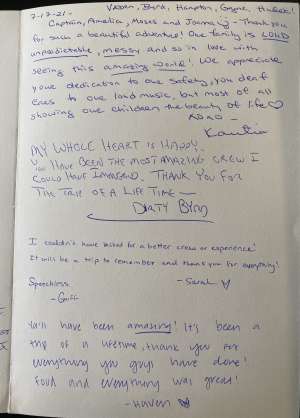 7-17-21-
Vaden, Byrd, Hampton,
Captain, Amelia, Moses and - Thank you
for such a beautiful adventure! Our family is LOUD
unpredictable, messy and so in love with
seeing this amazing world! We appreciate
your dedication to our safety, your deaf
ears to our loud music, but most of all
showing our children the beauty of life ♡
XOXO -
MY WHOLE HEART IS HAPPY.
YOU HAVE BEEN THE MOST AMAZING CREW I
COULD HAVE IMAGINED. THANK YOU FOR
THE TRIP OF A LIFE TIME —
DIRTY BYRD
I couldn't have asked for a better crew or experience!
It will be a trip to remember and thank you for everything!
Speechless. - Sarah ♡
- Griff
Ya'll have been amazing! It's been a
trip of a lifetime, thank you for
everything you guys have done!
Food and everything was great!
- Haven ♡